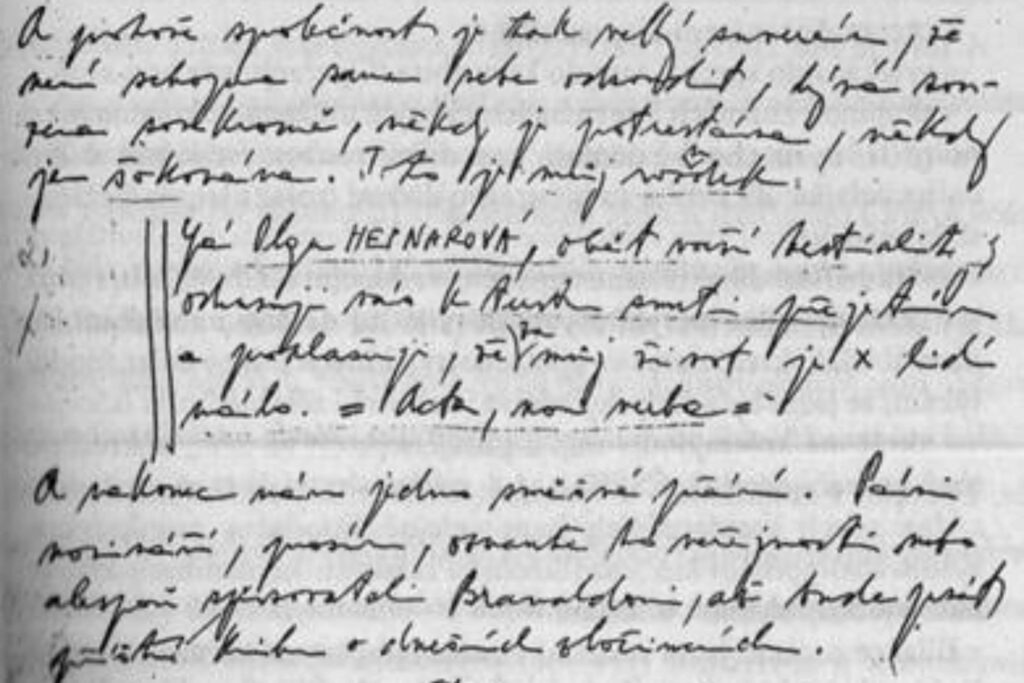 A protože společnost je tak velký suverén, že
není schopna sama sebe odsoudit, bývá sou-
zena soukromě, někdy je potrestána, někdy
je šokována. To je můj rozsudek.
Já Olga HEPNAROVÁ, oběť vaší bestiality,
odsuzuji vás k trestu smrti přejetím
a prohlašuji, že můj život je x lidí
málo. = Acta, non verba =
A nakonec mám jedno směšné přání. Páni
novináři, prosím, oznamte to veřejnosti nebo
alespoň spisovateli Bravaldovi, až bude psát
příští knihu o dnešních zločincích.